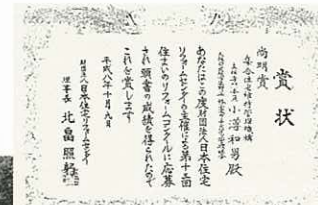 賞状
尚明賞
小澤和男殿
あなたはこの度財団法人日本住宅
リフォームセンターの主催による第十三回
住まいのリフォームコンクールに応募
され頭書の成績を得られたので
これを賞します
平成八年十月九日
財団法人日本住宅リフォームセンター
理事長 北畠照躬